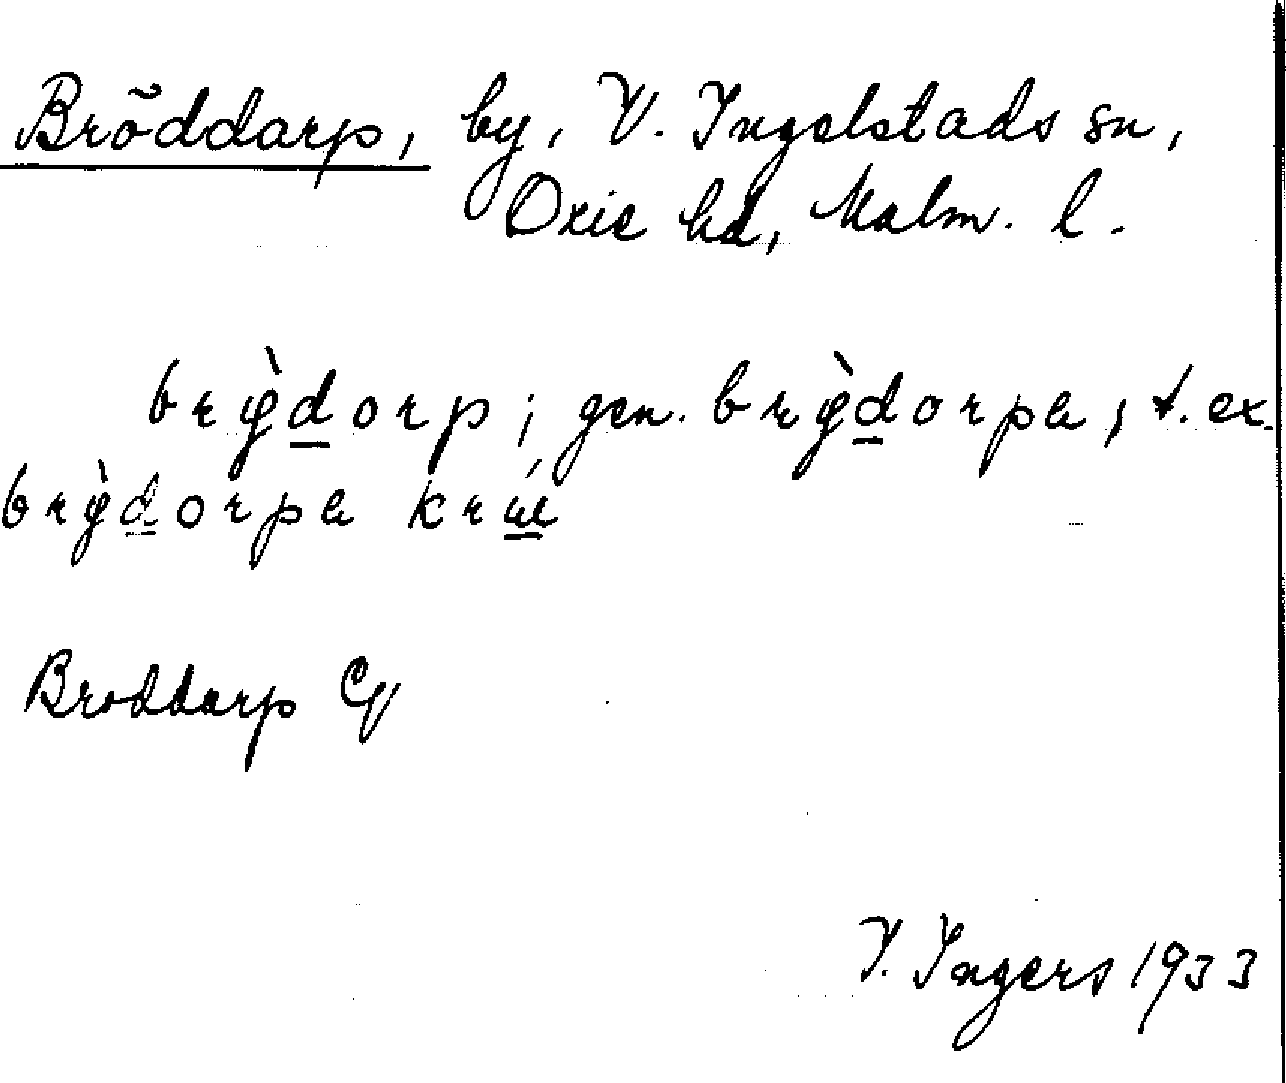 Bröddarp, by, V. Ingelstads sn,
Oxie hd, Malm. l.
brø̀d̲orp; gen. brø̀d̲orpa, t. ex.
brø̀d̲orpa
Broddarp
I. Ingers 1933